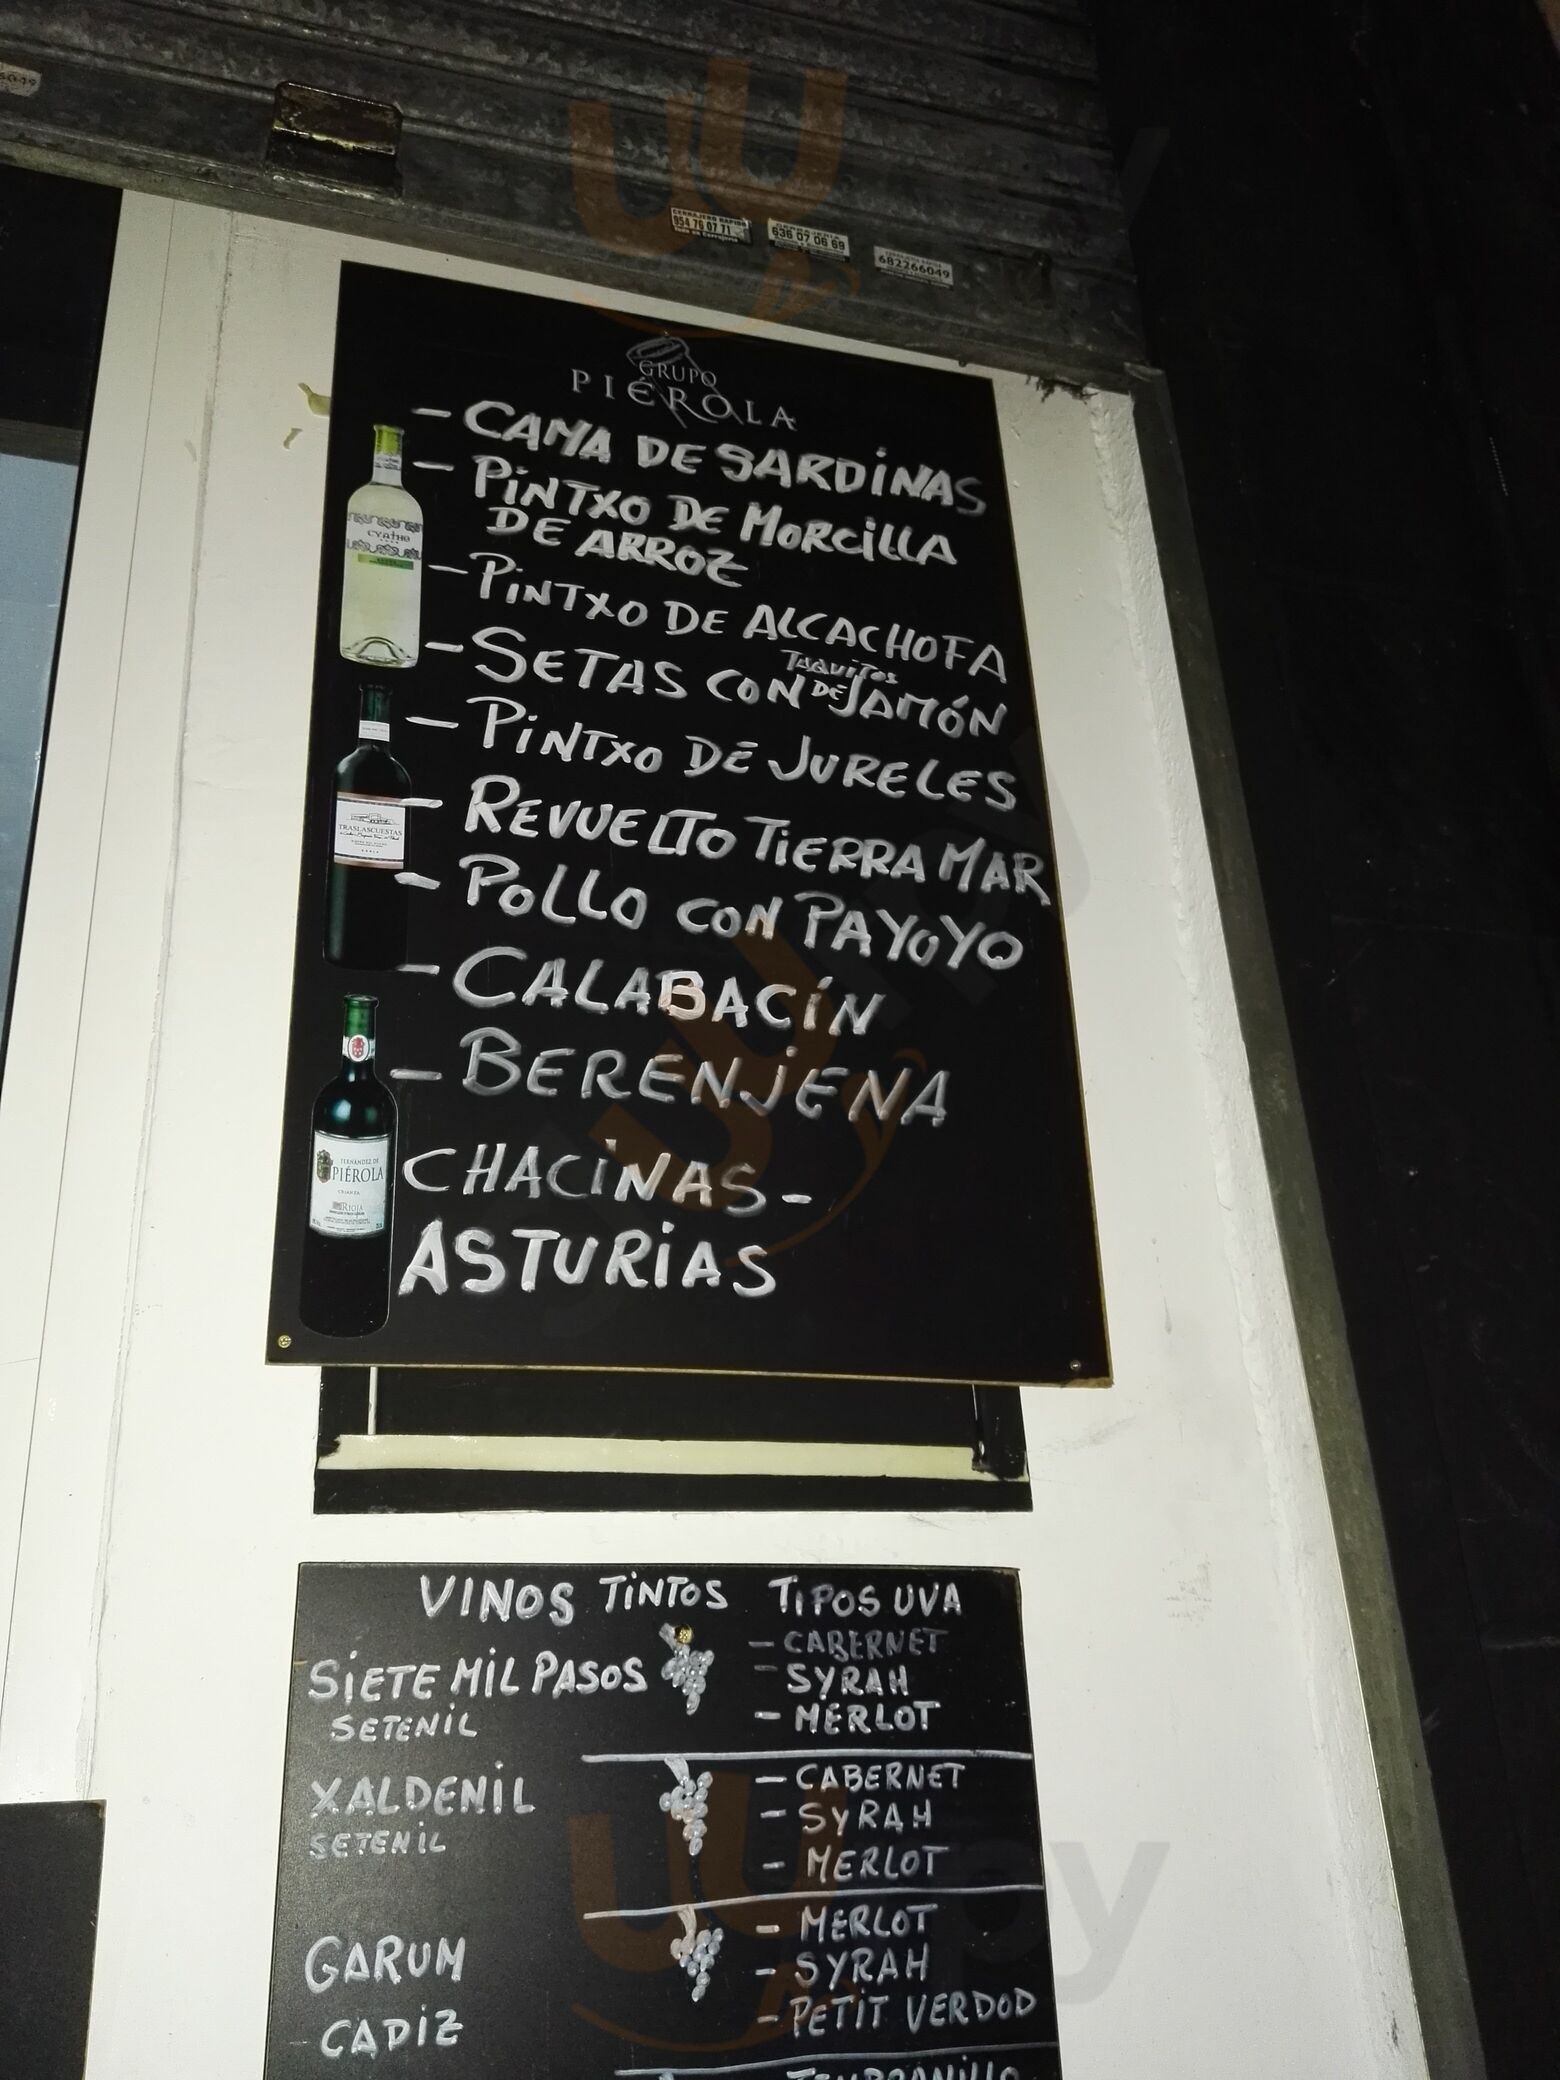 CERRAJERO RAPIDO
954 76 07 71
CERRAJERIA
636 07 06 69
682266049
GRUPO
PIÉROLA
- CAMA DE SARDINAS
- PINTXO DE MORCILLA
DE ARROZ
- PINTXO DE ALCACHOFA
- SETAS CON TAQUITOS DE JAMÓN
- PINTXO DE JURELES
- REVUELTO TIERRA MAR
- POLLO CON PAYOYO
- CALABACÍN
- BERENJENA
CHACINAS -
ASTURIAS
CYATHO
TRASLASCUESTAS
FERNÁNDEZ DE
PIÉROLA
CRIANZA
RIOJA
VINOS TINTOS TIPOS UVA
SIETE MIL PASOS
SETENIL
- CABERNET
- SYRAH
- MERLOT
XALDENIL
SETENIL
- CABERNET
- SYRAH
- MERLOT
GARUM
CADIZ
- MERLOT
- SYRAH
- PETIT VERDOD
TEMPRANILLO